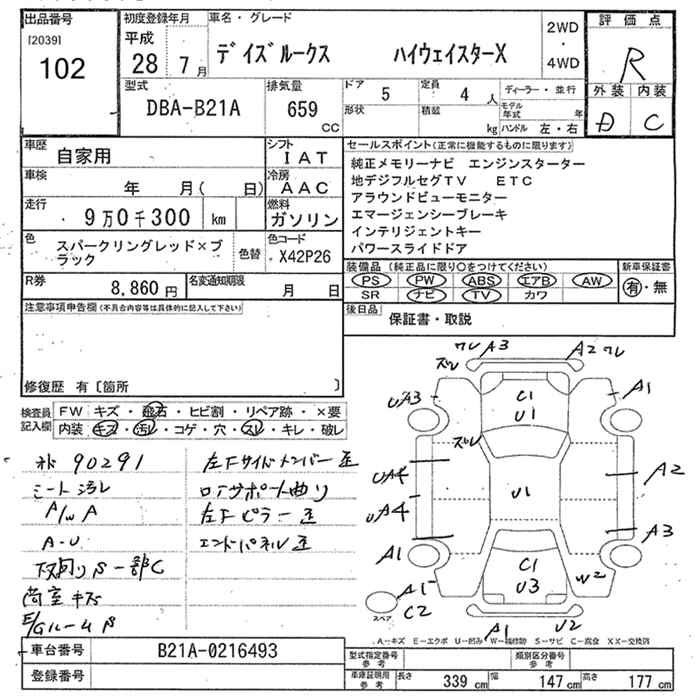 出品番号
[2039]
102
初度登録年月
平成
28年7月
車名・グレード
デイズルークス ハイウェイスターX
2WD
・
4WD
評価点
R
外装 内装
D C
型式
DBA-B21A
排気量
659
CC
ドア 5
形状
定員 4人
積装 kg
ディーラー・並行
モデル年式 年
ハンドル 左・右
車歴
自家用
シフト
IAT
車検
年 月( 日)
冷房
AAC
走行
9万0千300 km
燃料
ガソリン
色
スパークリングレッド×ブラック
色替
色コード
X42P26
R券
8,860円
名変通知期限
月 日
セールスポイント(正常に機能するものに限ります)
純正メモリーナビ エンジンスターター
地デジフルセグTV ETC
アラウンドビューモニター
エマージェンシーブレーキ
インテリジェントキー
パワースライドドア
装備品(純正品に限り○をつけてください)
PS PW ABS エアB AW
SR ナビ TV カワ
新車保証書
有・無
後日品
保証書・取説
注意事項申告欄(不具合内容等は具体的に記入して下さい)
修復歴 有〔箇所 〕
検査員記入欄
FW キズ・飛石・ヒビ割・リペア跡・×要
内装 キズ・汚レ・コゲ・穴・スレ・キレ・破レ
90291
シート汚レ
A/W A
A-U
下回りS一部C
荷室キズ
E/GルームS
左Fサイドメンバー歪
ロアサポート曲り
左Fピラー歪
エンドパネル歪
ワレ A3
A2 ワレ
スレ
UA3
A1
C1
U1
スレ
UA4
U1
A2
UA4
A3
A1
C1
U3
W2
A1
C2
スペア
A1
U2
A-キズ E-エクボ U-凹み W-補修跡 S-サビ C-腐食 XX-交換済
車台番号
B21A-0216493
登録番号
型式指定番号
参考
類別区分番号
参考
車庫証明用
参考
長さ 339 cm
幅 147 cm
高さ 177 cm